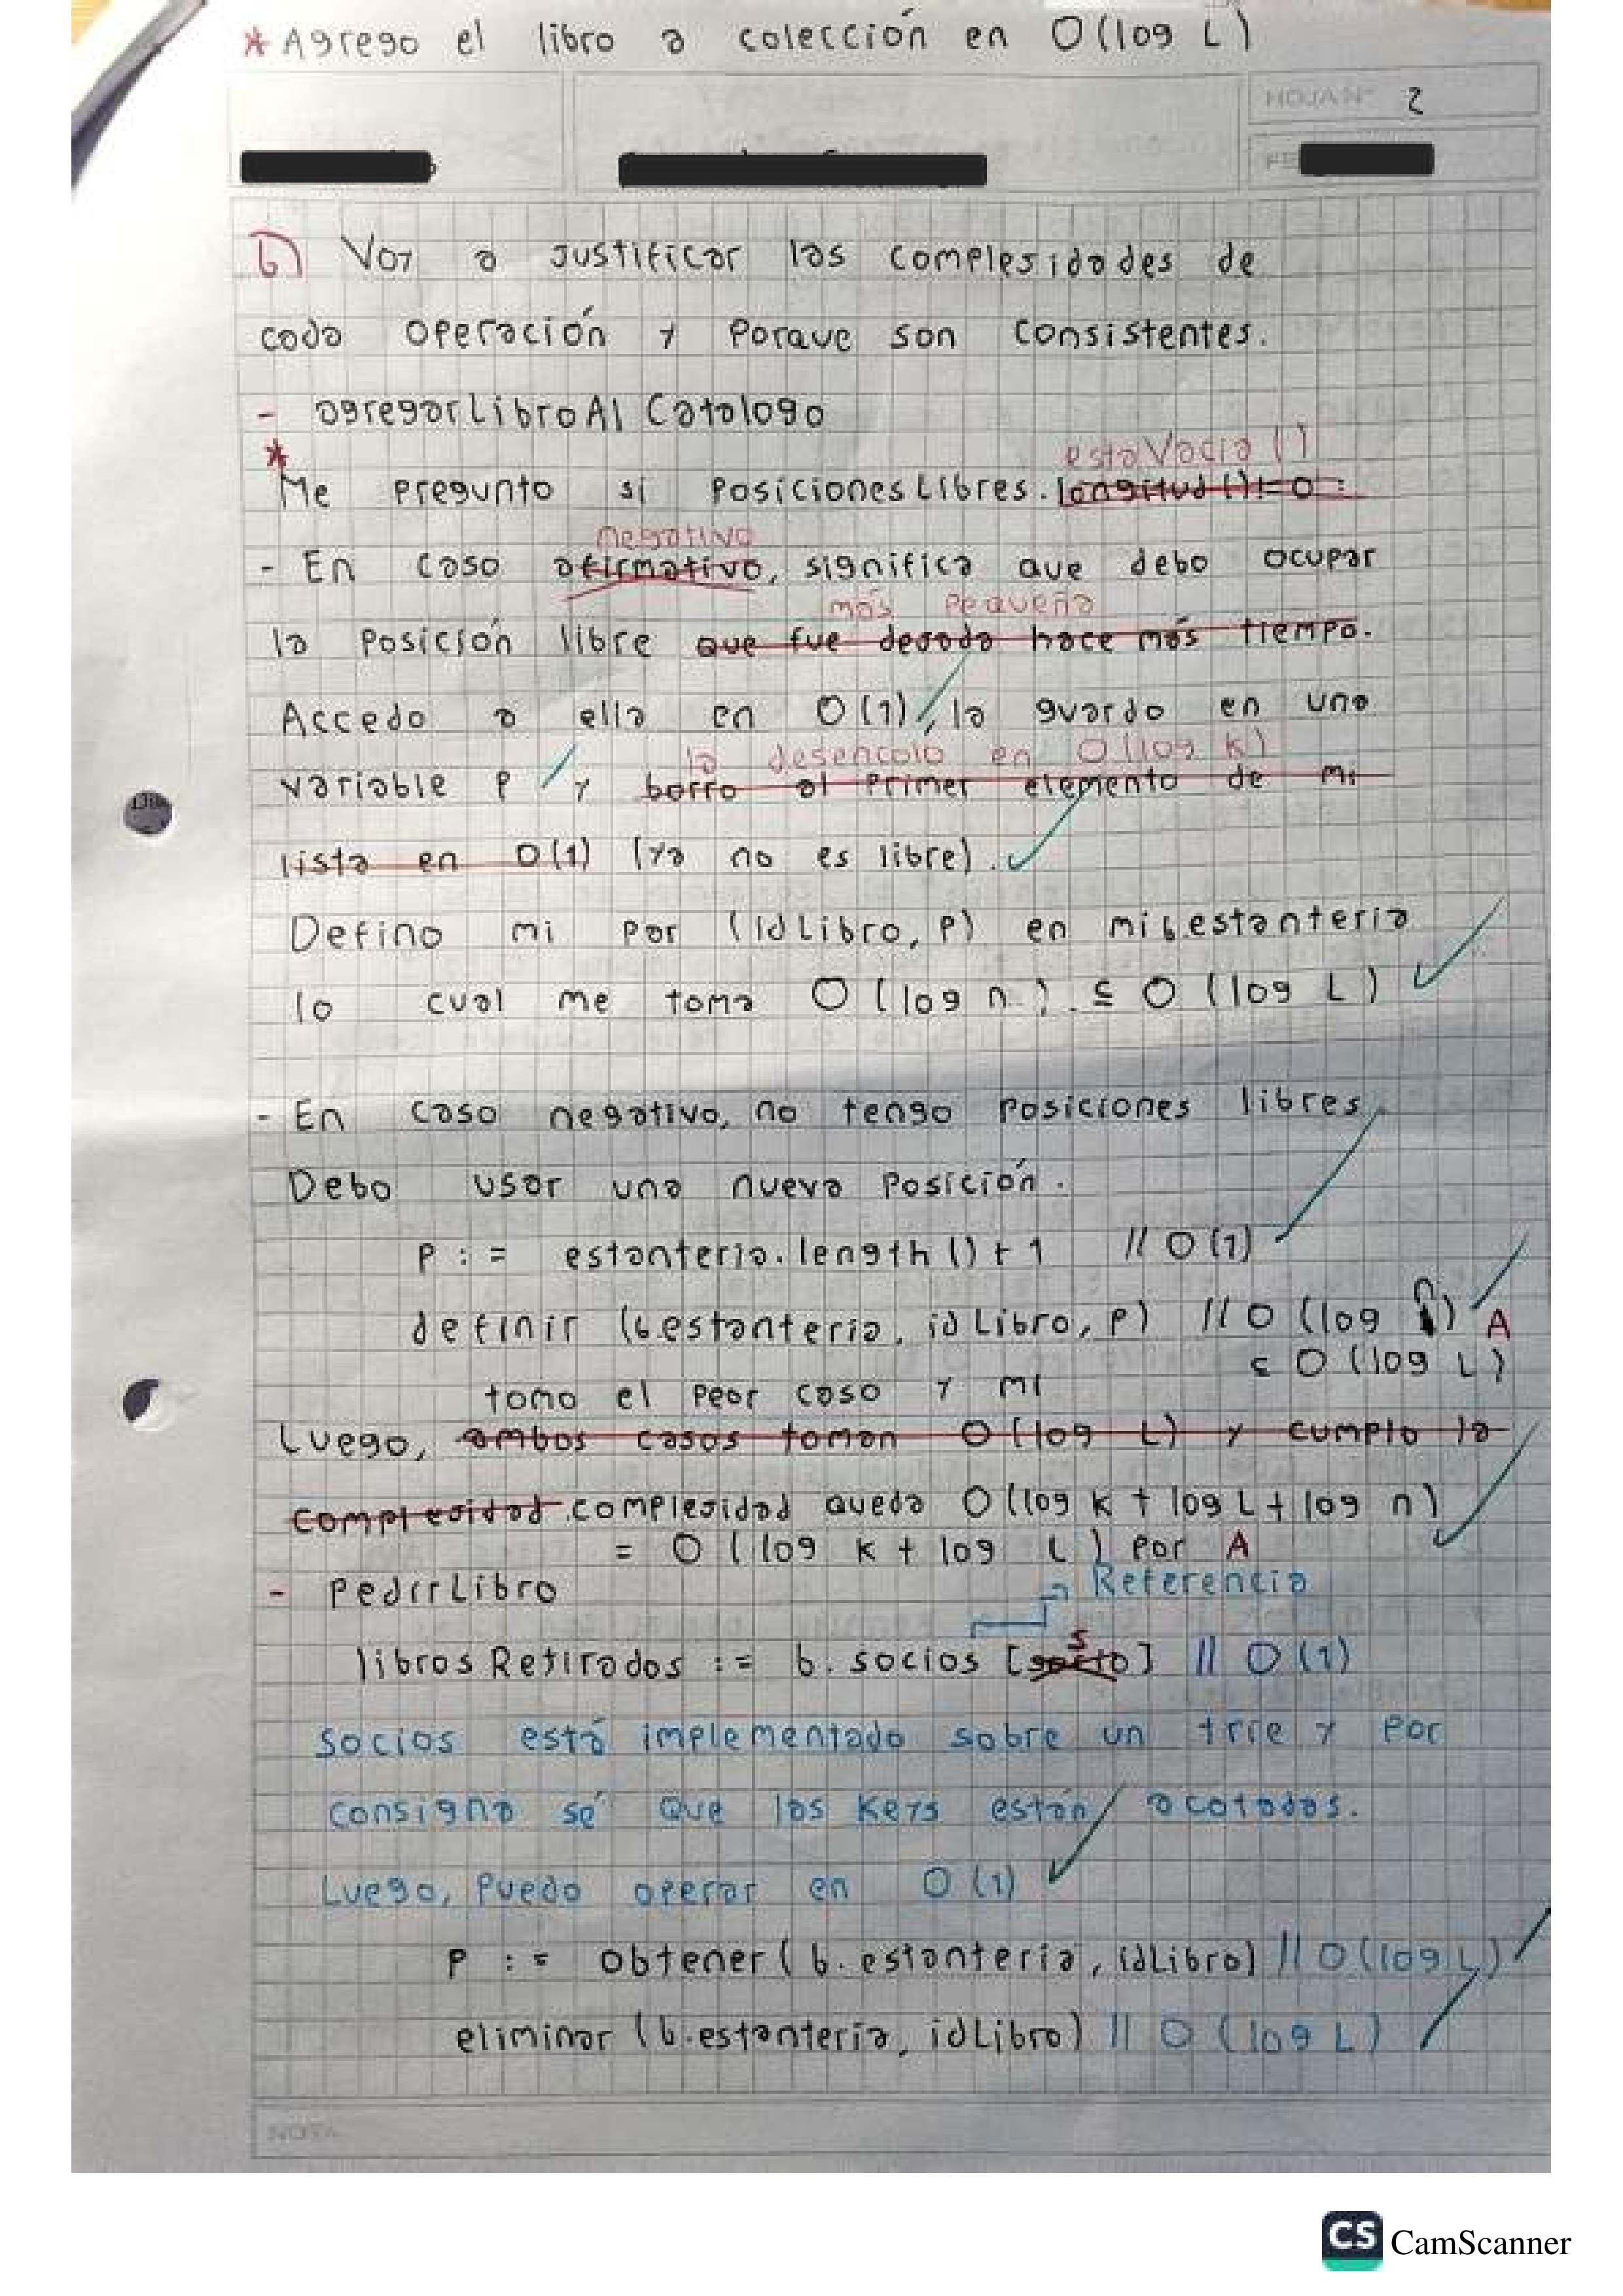 * Agrego el libro a colección en O(log L)
HOJA N° 2
b) Voy a justificar las complejidades de
cada operación y porque son consistentes.
- agregarLibroAlCatalogo
estaVacia()
* Me pregunto si posicionesLibres.longitud()!=0:
negativo
- En caso afirmativo, significa que debo ocupar
más pequeña
la posición libre que fue dejada hace más tiempo.
Accedo a ella en O(1), la guardo en una
la desencolo en O(log K)
variable p y borro al primer elemento de mi
lista en O(1) (ya no es libre).
Defino mi par (idLibro, p) en mi b.estanteria
lo cual me toma O(log n) ≤ O(log L)
- En caso negativo, no tengo posiciones libres
Debo usar una nueva posición.
p := estanteria.length()+1 // O(1)
definir (b.estanteria, idLibro, p) // O(log n) A
≤ O(log L)
tomo el peor caso y mi
Luego, ambos casos toman O(log L) y cumplo la
complejidad. complejidad queda O(log k + log L + log n)
= O(log k + log L) por A
- pedirLibro
Referencia
s
librosRetirados := b.socios [socio] // O(1)
Socios está implementado sobre un trie y por
consigna sé que las keys están acotadas.
Luego, puedo operar en O(1)
p := obtener(b.estanteria, idLibro) // O(log L)
eliminar (b.estanteria, idLibro) // O(log L)
NOTA
CS CamScanner